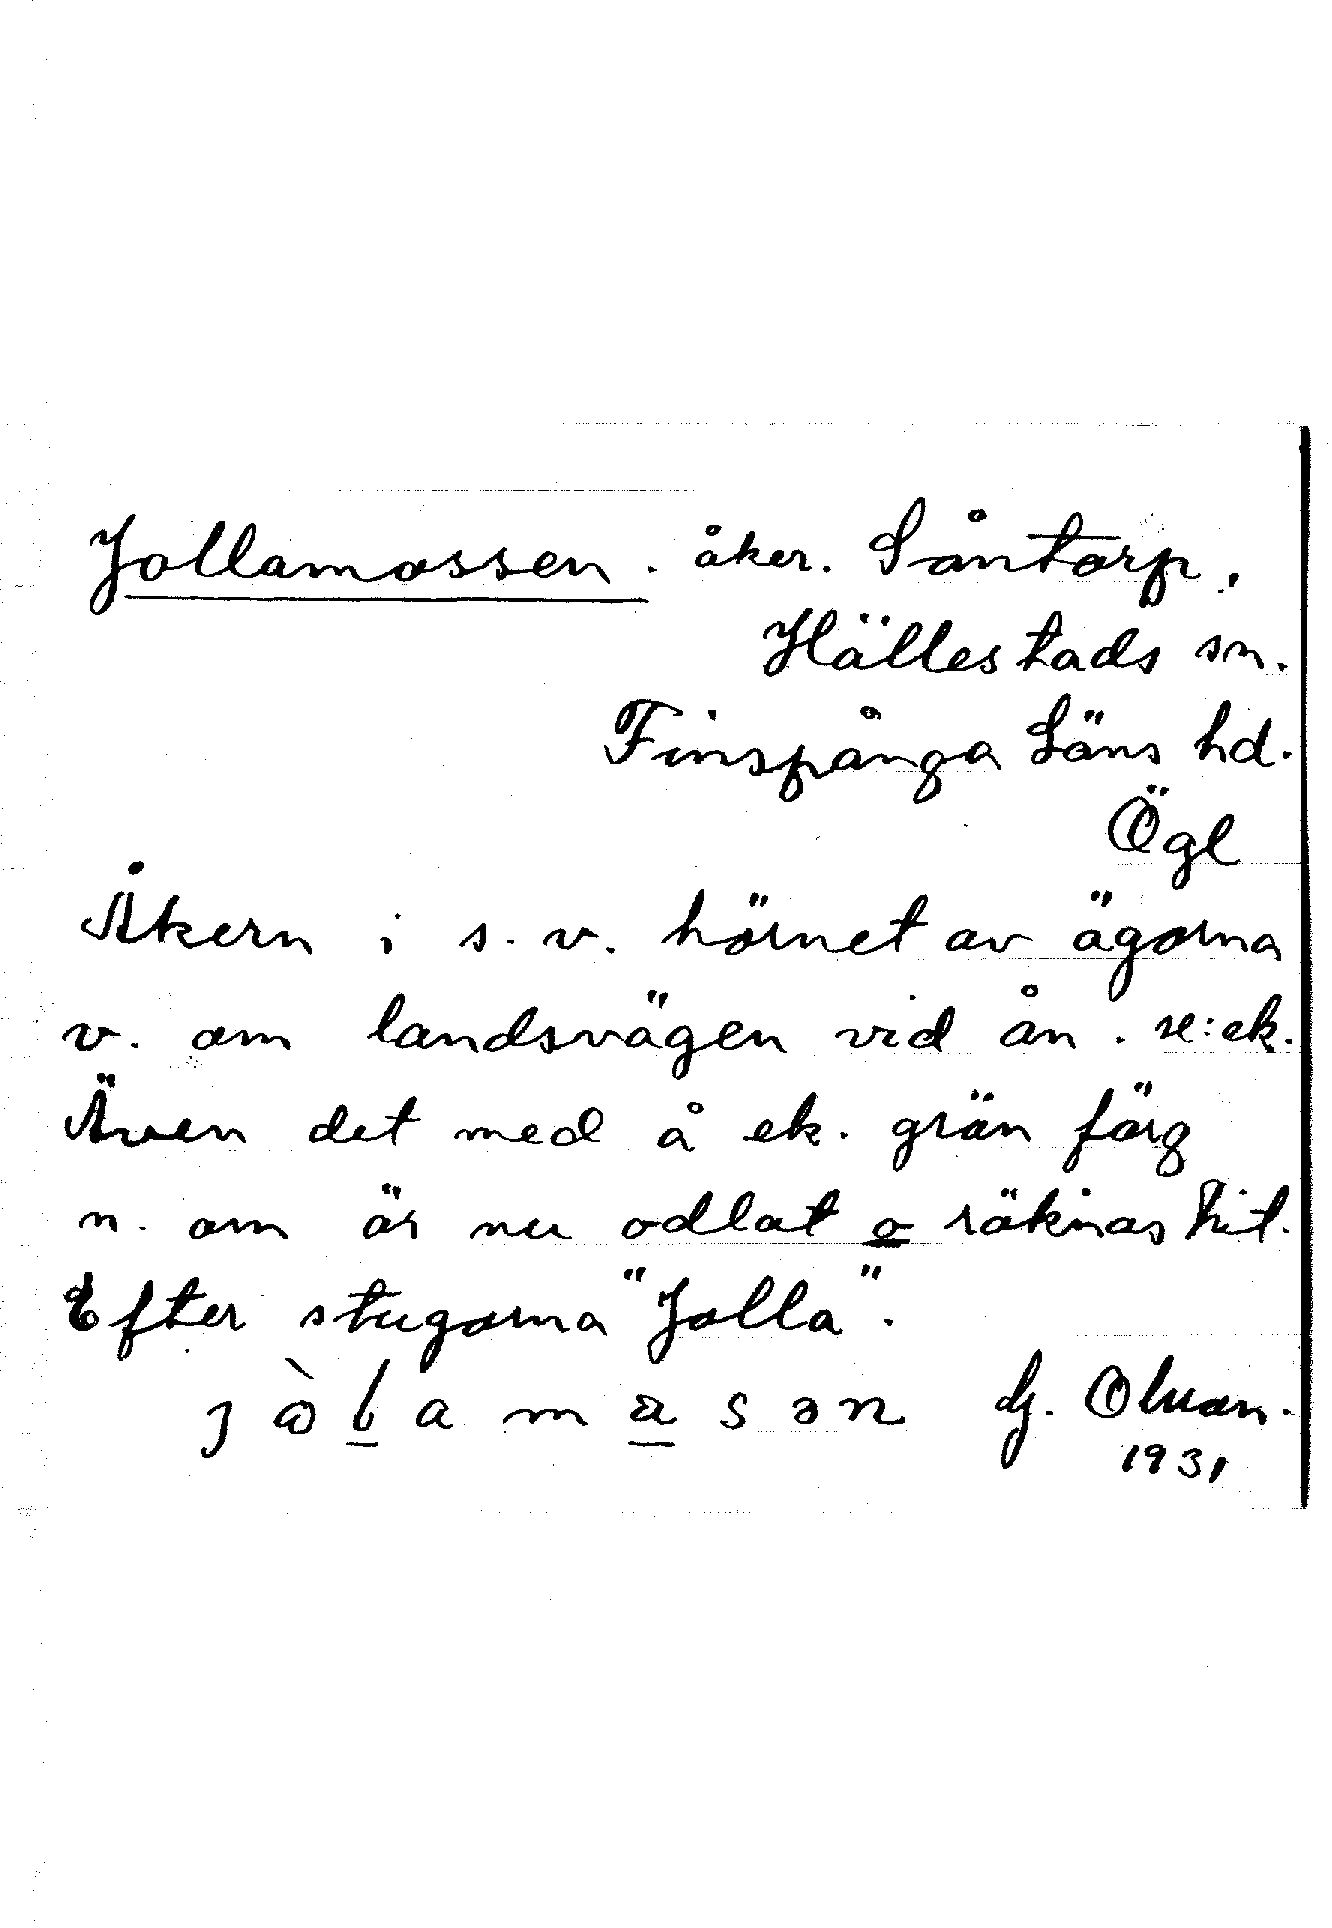 Jollamossen. åker. Såntorp,
Hällestads sn.
Finspånga Läns hd.
Ögl
Åkern i s.v. hörnet av ägorna
v. om landsvägen vid ån. se: ek.
Även det med å ek. grön färg
n. om är nu odlat o räknas hit.
Efter stugorna "Jolla".
1931